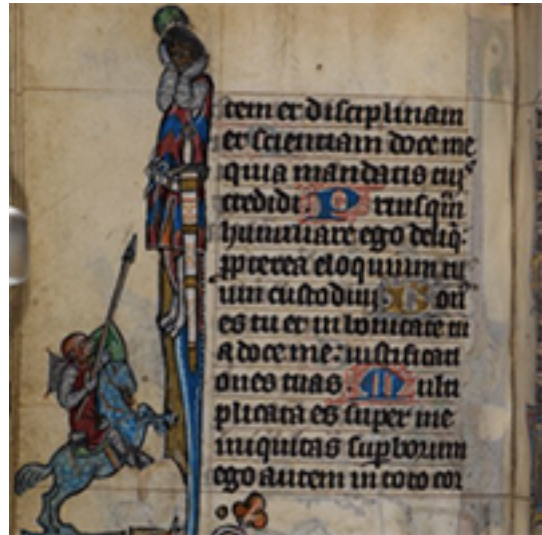 tem et disciplinam
et scientiam doce me
quia mandatis tuis
credidi. Priusqm̄
humiliare ego deliq̄:
ꝓpterea eloquium tu
um custodiui. Bon
es tu et in bonitate tu
a doce me: iustificati
ones tuas. Multi
plicata es super me
iniquitas suꝑborum
ego autem in toto cor